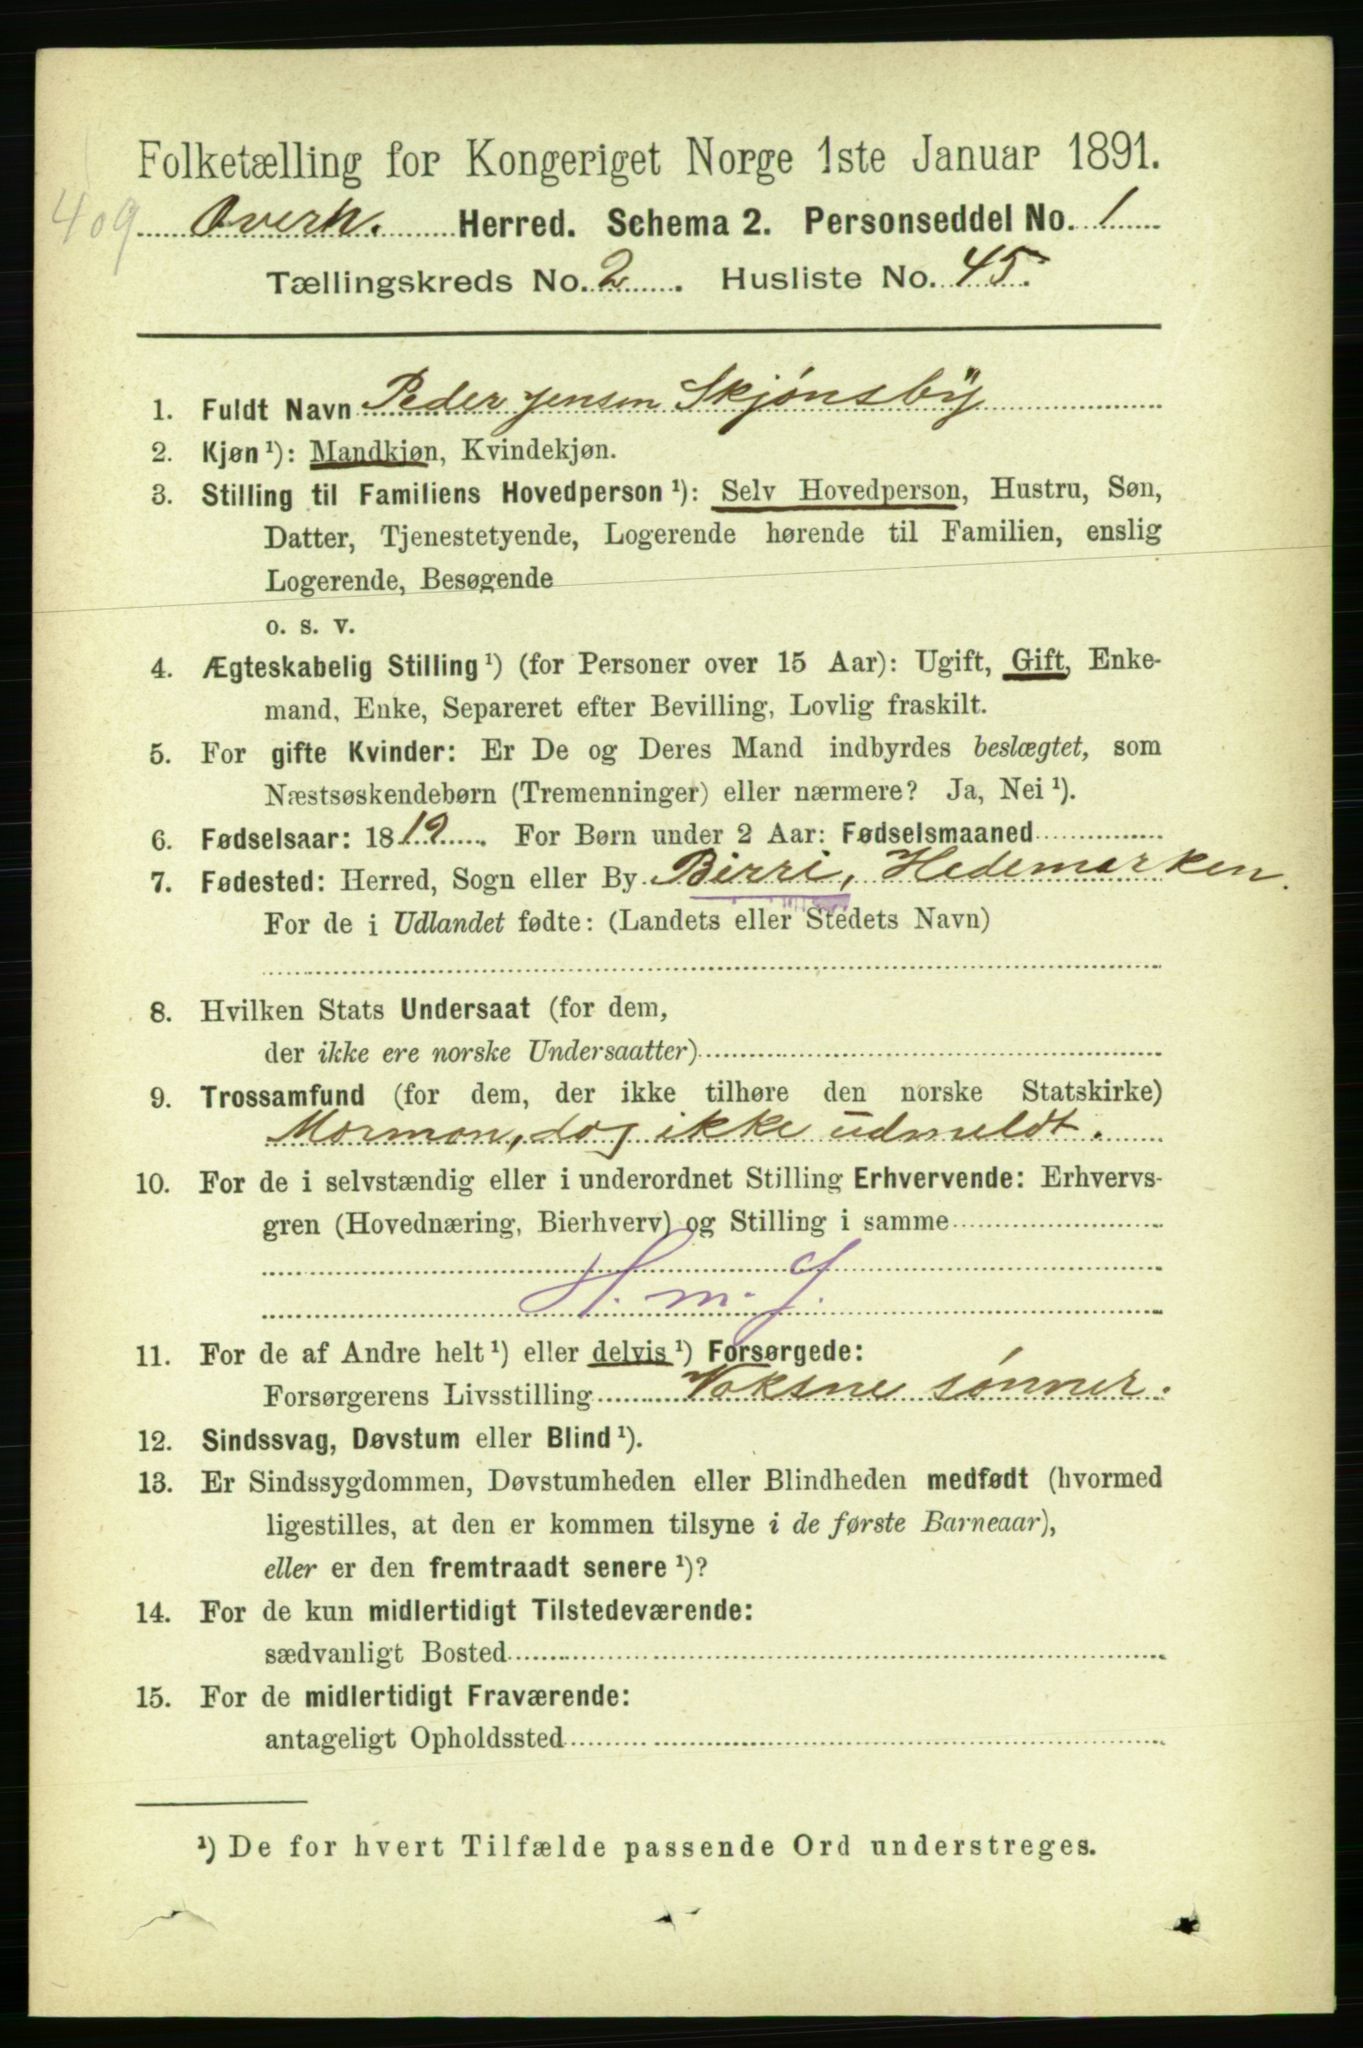 Folketælling for Kongeriget Norge 1ste Januar 1891.
409
Overh. Herred. Schema 2. Personseddel No. 1
Tællingskreds No. 2. Husliste No. 45.
1. Fuldt Navn Peder Jensen Skjønsby
2. Kjøn ¹): Mandkjøn, Kvindekjøn.
3. Stilling til Familiens Hovedperson ¹): Selv Hovedperson, Hustru, Søn,
Datter, Tjenestetyende, Logerende hørende til Familien, enslig
Logerende, Besøgende
o. s. v.
4. Ægteskabelig Stilling ¹) (for Personer over 15 Aar): Ugift, Gift, Enke-
mand, Enke, Separeret efter Bevilling, Lovlig fraskilt.
5. For gifte Kvinder: Er De og Deres Mand indbyrdes beslægtet, som
Næstsøskendebørn (Tremenninger) eller nærmere? Ja, Nei ¹).
6. Fødselsaar: 1819. For Børn under 2 Aar: Fødselsmaaned
7. Fødested: Herred, Sogn eller By Birri, Hedemarken.
For de i Udlandet fødte: (Landets eller Stedets Navn)
8. Hvilken Stats Undersaat (for dem,
der ikke ere norske Undersaatter)
9. Trossamfund (for dem, der ikke tilhøre den norske Statskirke)
Mormon, dog ikke udmeldt.
10. For de i selvstændig eller i underordnet Stilling Erhvervende: Erhvervs-
gren (Hovednæring, Bierhverv) og Stilling i samme
H. m. f.
11. For de af Andre helt ¹) eller delvis ¹) Forsørgede:
Forsørgerens Livsstilling Voksne sønner.
12. Sindssvag, Døvstum eller Blind ¹).
13. Er Sindssygdommen, Døvstumheden eller Blindheden medfødt (hvormed
ligestilles, at den er kommen tilsyne i de første Barneaar),
eller er den fremtraadt senere ¹)?
14. For de kun midlertidigt Tilstedeværende:
sædvanligt Bosted
15. For de midlertidigt Fraværende:
antageligt Opholdssted
¹) De for hvert Tilfælde passende Ord understreges.